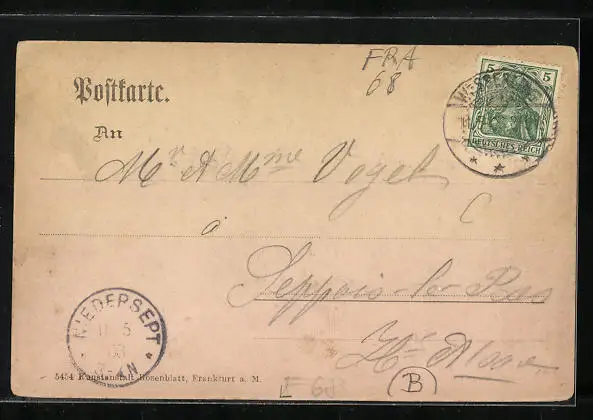 FRA
68
5 5
DEUTSCHES REICH
Postkarte.
An
Mr & Mme Vogel
à
Seppois-le-Bas
Hte Alsace
NIEDERSEPT
5454 Kunstanstalt Rosenblatt, Frankfurt a. M.
B